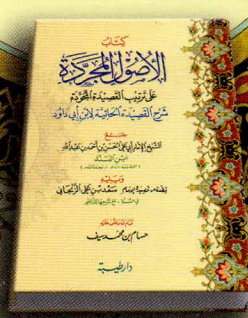 كتاب
الأصول المجردة
على ترتيب القصيدة المجودة
شرح القصيدة الحائية لابن أبي داود
جمع
الشيخ الإمام أبي علي الحسن بن أحمد بن عبد الله
ابن البناء
ويليه
سعد بن علي الزنجاني
حسام بن محمد سيف
دار طيبة